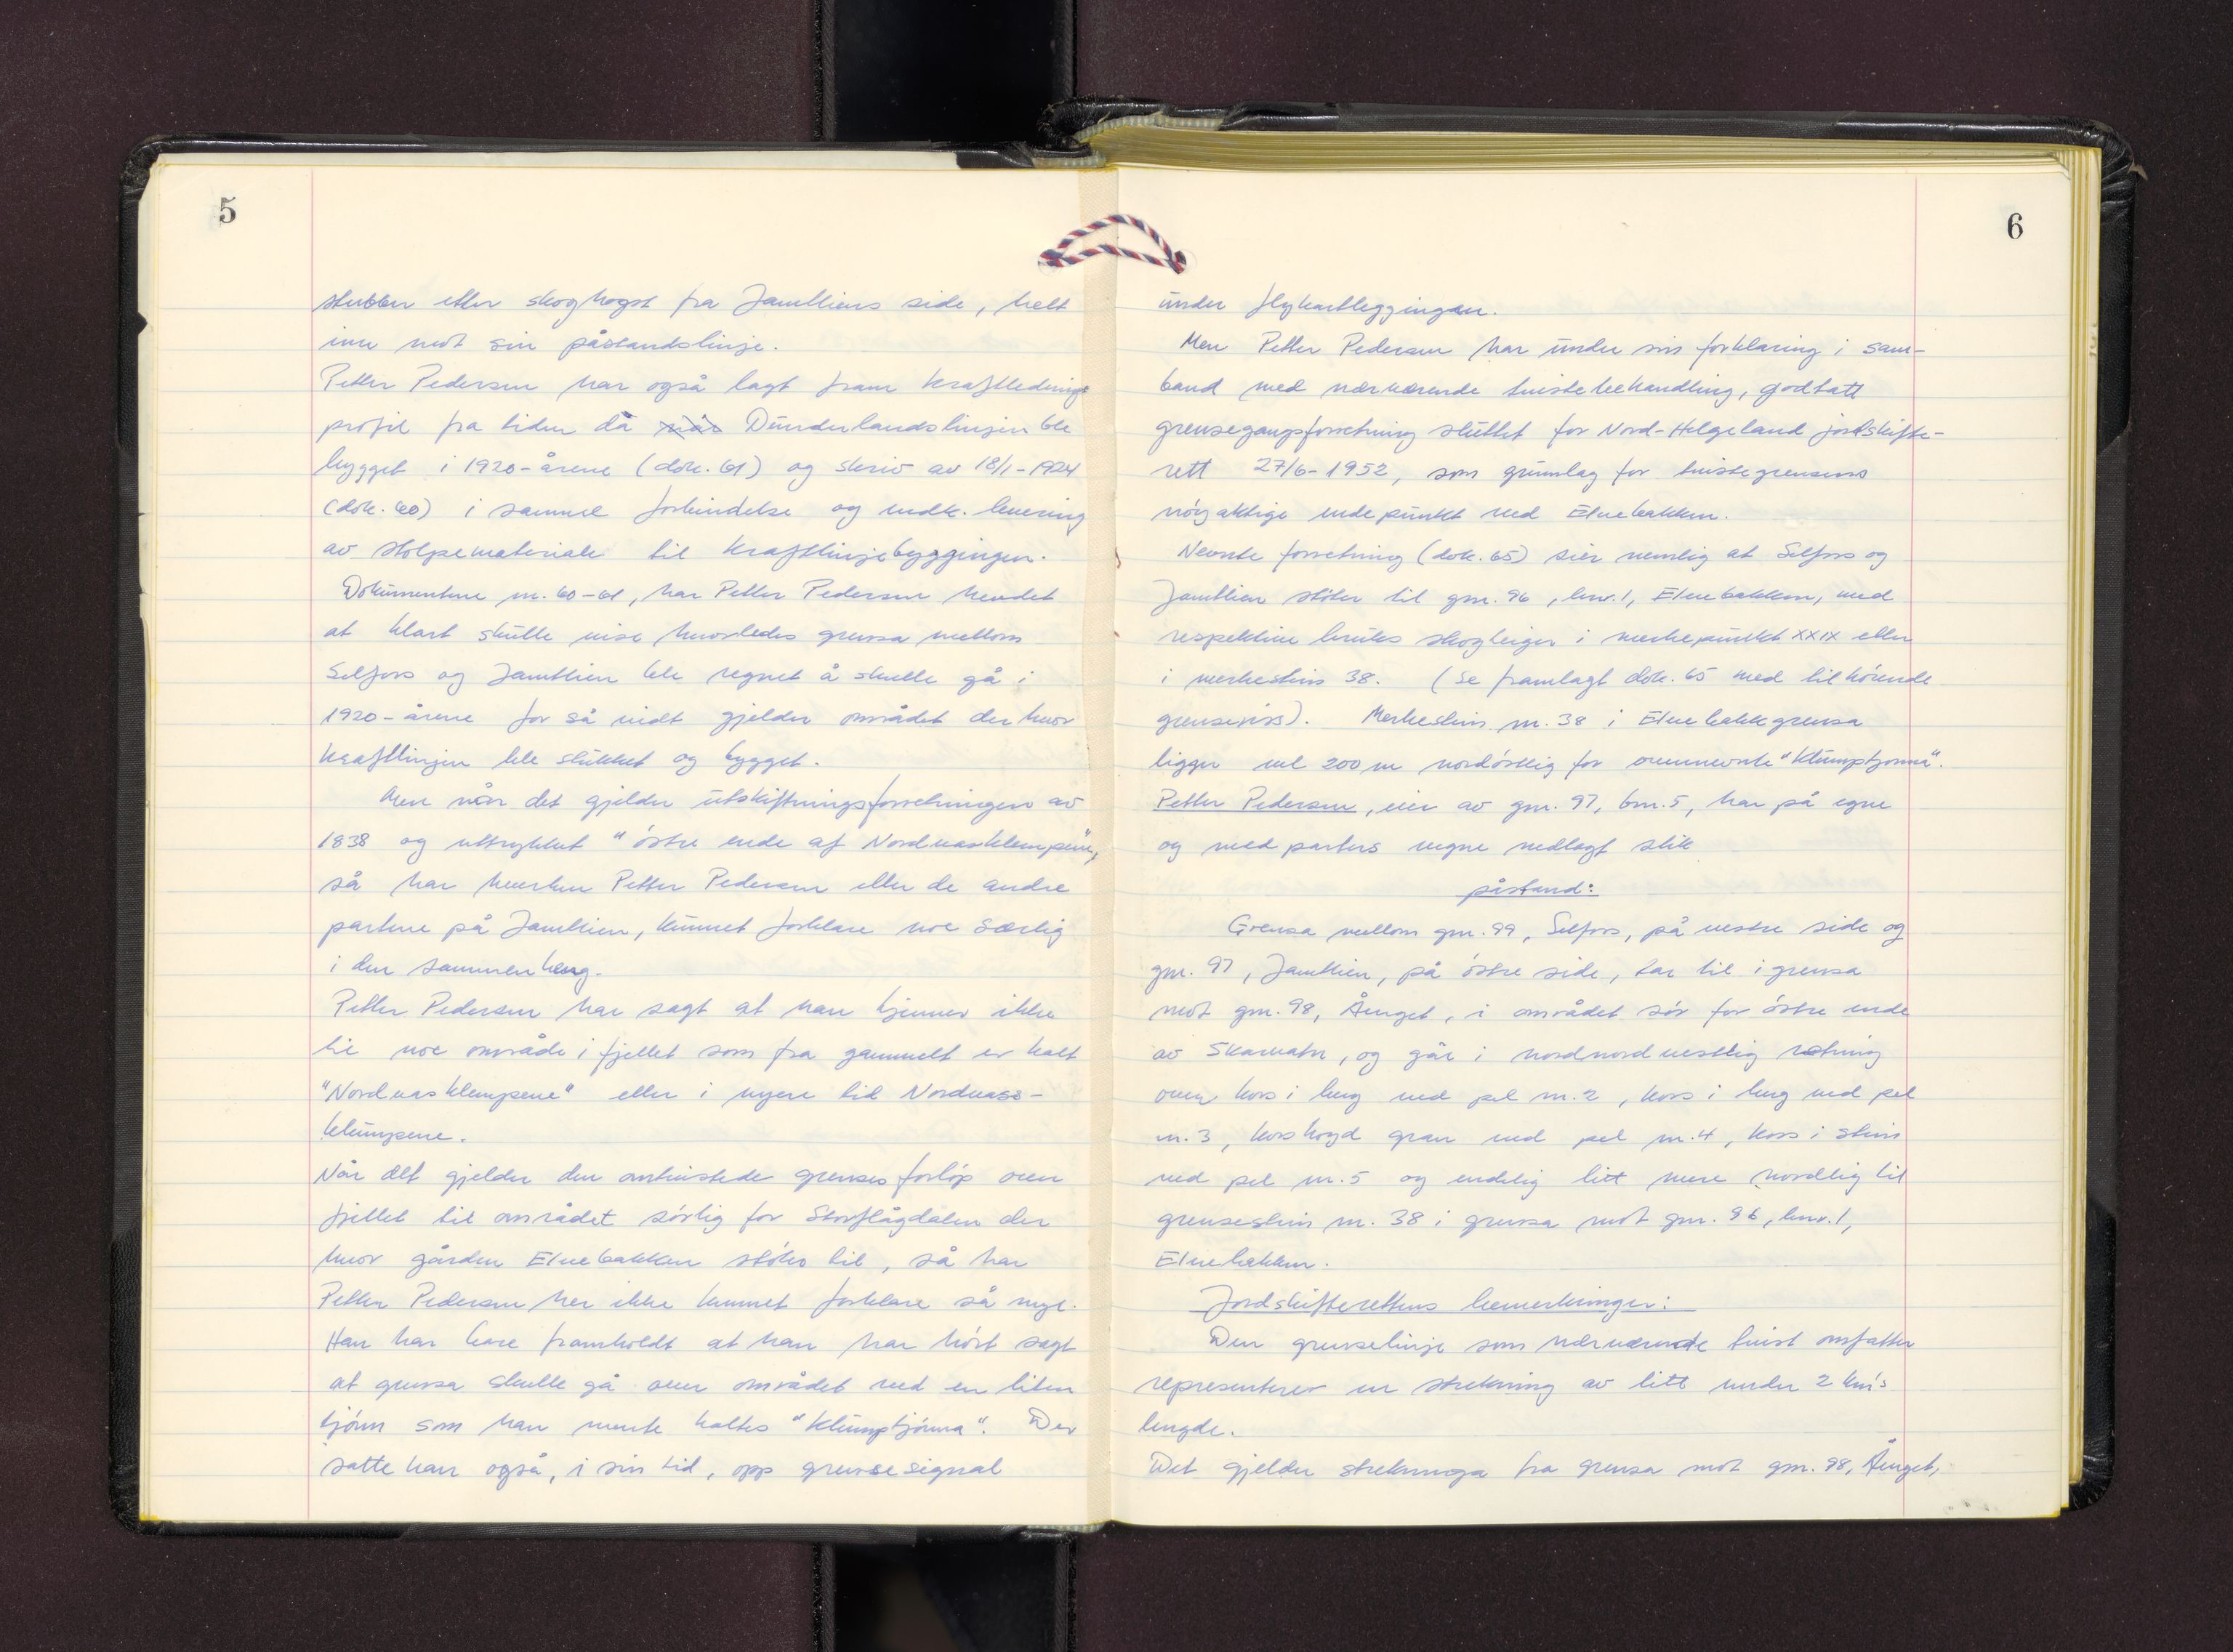 5
stubber etter skoghogst fra Jamtliens side, helt
inn mot sin påstandslinje.
Petter Pedersen har også lagt fram kraftlednings
profil fra tiden da når Dunderlandslinjen ble
bygget i 1920-årene (dok. 61) og skriv av 18/1-1924
(dok. 60) i samme forbindelse og vedk. levering
av stolpemateriale til kraftlinjebyggingen.
Dokumentene nr. 60-61, har Petter Pedersen hevdet
at klart skulle vise hvorledes grensa mellom
Selfors og Jamtlien ble regnet å skulle gå i
1920-årene for så vidt gjelder området der hvor
kraftlinjen ble stukket og bygget.
Men når det gjelder utskiftningsforretningen av
1838 og uttrykket "østre ende af Nordnasklempene",
så har hverken Petter Pedersen eller de andre
partene på Jamtlien, kunnet forklare noe særlig
i den sammenheng.
Petter Pedersen har sagt at han kjenner ikke
til noe område i fjellet som fra gammelt er kalt
"Nordnasklempene" eller i nyere tid Nordnass-
klumpene.
Når det gjelder den omtvistede grenses forløp over
fjellet til området sørlig for Storflågdalen der
hvor gården Elvebakken støter til, så har
Petter Pedersen her ikke kunnet forklare så mye.
Han har bare framholdt at han har hørt sagt
at grensa skulle gå over området ved en liten
tjønn som han mente kaltes "Klumptjønna". Der
satte han også, i sin tid, opp grensesignal
6
under flykartleggingen.
Men Petter Pedersen har under sin forklaring i sam-
band med nærværende tvistebehandling, godtatt
grensegangsforretning sluttet for Nord-Helgeland jordskifte-
rett 27/6-1952, som grunnlag for tvistegrensens
nøyaktige endepunkt ved Elvebakken.
Nevnte forretning (dok. 65) sier nemlig at Selfors og
Jamtlien støter til gnr. 96, bnr. 1, Elvebakken, med
respektive bruks skogteiger i merkepunkt XXIX eller
i merkestein 38. (Se framlagt dok. 65 med tilhørende
grenseriss). Merkestein nr. 38 i Elvebakkgrensa
ligger vel 200 m nordøstlig for ovennevnte "Klumptjønna".
Petter Pedersen, eier av gnr. 97, bnr. 5, har på egne
og medparters vegne nedlagt slik
påstand:
Grensa mellom gnr. 99, Selfors, på vestre side og
gnr. 97, Jamtlien, på østre side, tar til i grensa
mot gnr. 98, Ånget, i området sør for østre ende
av Skarvatn, og går i nordnordvestlig retning
over kors i berg ved pel nr. 2, kors i berg ved pel
nr. 3, korshogd gran ved pel nr. 4, kors i stein
ved pel nr. 5 og endelig litt mere nordlig til
grensestein nr. 38 i grensa mot gnr. 96, bnr. 1,
Elvebakken.
Jordskifterettens bemerkninger:
Den grenselinje som nærværende tvist omfatter
representerer en strekning av litt under 2 km's
lengde.
Det gjelder strekninga fra grensa mot gnr. 98, Ånget,